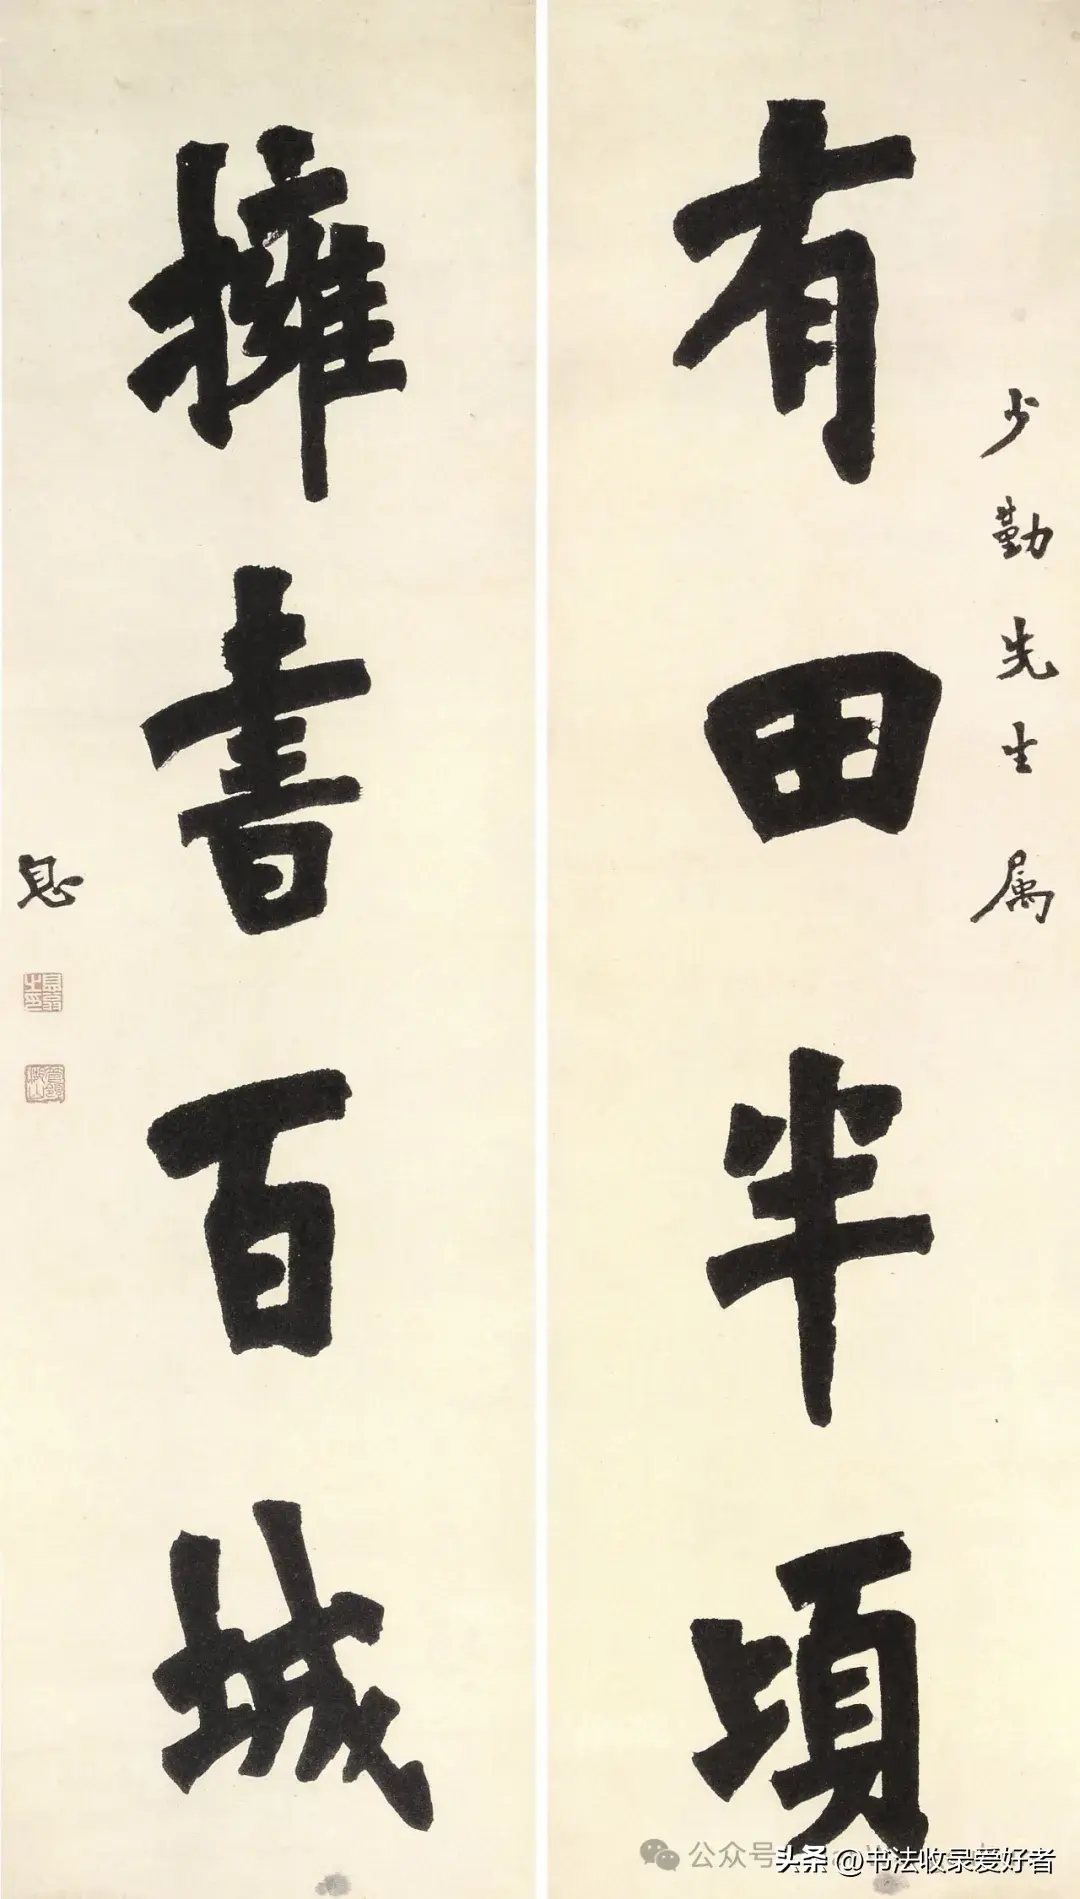 少勤先生属
有田半頃
擁書百城
息
公众号
头条 @书法收录爱好者